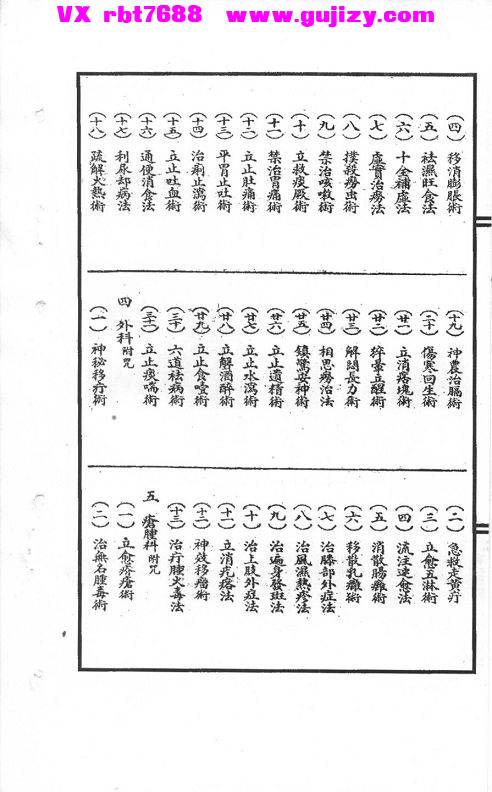 VX rbt7688 www.gujizy.com
（四）移消膨脹術
（五）祛濕旺食法
（六）十全補虛法
（七）虛實治癆法
（八）撲殺癆虫術
（九）禁治咳嗽術
（十）立救痰厥術
（十一）禁治胃痛術
（十二）立止肚痛術
（十三）平胃止吐術
（十四）治痢止瀉術
（十五）立止吐血術
（十六）通便消食法
（十七）利尿却病法
（十八）疏解火熱術
（十九）神農治膈術
（二十）傷寒回生術
（廿一）立消痞塊術
（廿二）猝暈立醒術
（廿三）解悶長力術
（廿四）相思癆治法
（廿五）鎮驚安神術
（廿六）立止遺精術
（廿七）立止水瀉術
（廿八）立解酒醉術
（廿九）立止食噎術
（三十）六道祛病術
（三一）立止痰喘術
四 外科附咒
（一）神秘移疔術
（二）急救走黃疔
（三）立愈五淋術
（四）流注速愈法
（五）消散腸癰術
（六）移散乳癰術
（七）治膝部外症法
（八）治風濕熱疹法
（九）治遍身發斑法
（十）治上肢外症法
（十一）立消疙瘩法
（十二）神效移瘤術
（十三）治疔腫火毒法
五 瘡腫科附咒
（一）立愈疥瘡術
（二）治無名腫毒術